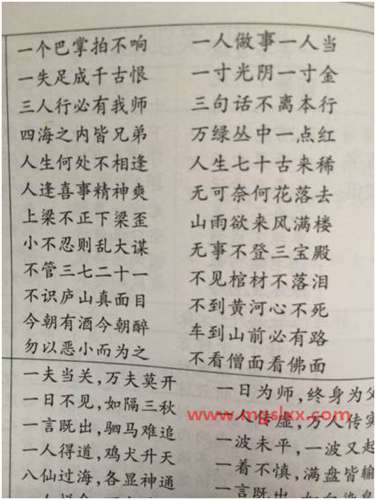 一个巴掌拍不响
一失足成千古恨
三人行必有我师
四海之内皆兄弟
人生何处不相逢
人逢喜事精神爽
上梁不正下梁歪
小不忍则乱大谋
不管三七二十一
不识庐山真面目
今朝有酒今朝醉
勿以恶小而为之
一人做事一人当
一寸光阴一寸金
三句话不离本行
万绿丛中一点红
人生七十古来稀
无可奈何花落去
山雨欲来风满楼
无事不登三宝殿
不见棺材不落泪
不到黄河心不死
车到山前必有路
不看僧面看佛面
一夫当关,万夫莫开
一日不见,如隔三秋
一言既出,驷马难追
一人得道,鸡犬升天
八仙过海,各显神通
一日为师,终身为父
一人传虚,万人传实
一波未平,一波又起
一着不慎,满盘皆输
www.mgslxx.com